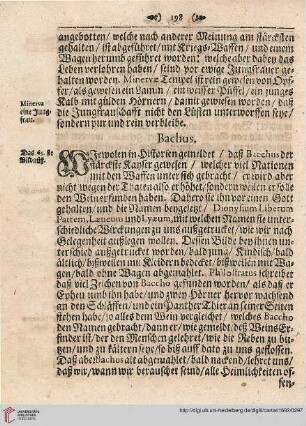 198
angebotten / welche nach anderer Meinung am stärcksten
gehalten / ist abgeführet mit Kriegs-Waffen / und einem
Wagen her umb geführt worden; welche aber dabey das
Leben verlohren haben / seind vor ewige Jungfrauen ge-
halten worden. Minervæ Tempel ist rein gewesen von Opf-
fer / als gewesen ein Lamm / ein weisser Püffel / ein junges
Kalb mit gülden Hörnern / damit gewiesen worden / daß
die Jungfrauschafft nicht den Lüsten unterworffen seye/
sondern pur und rein verbleibe.
Minerva
eine Jung-
frau.
Bachus.
Das 65. ste
Bildnüß.
Jewolen in Historien gemeldet / daß Bacchus der
stärckeste Kayser gewesen / welcher viel Nationen
mit den Waffen unter sich gebracht / er wird aber
nicht wegen der Thaten also erhöhet / sondern weilen er solle
den Wein erfunden haben. Dahero sie ihn vor einen Gott
gehalten / und die Namen beygelegt / Dionysium Liberum
Patrem, Lenæum und Lyæum, mit welchen Namen sie unter-
schiedliche Würckungen zu uns außgetrucket / wie wir nach
Gelegenheit außlegen wollen. Dessen Bilde bey ihnen un-
terschied zumahl außgetrucket / bald jung / Kindisch / bald
ältlich / bißweilen mit Kleidern bedecket / bißweilen mit Wa-
gen / bald ohne Wagen abgemahlet. Philostratus schreibet
daß viel Zeichen von Baccho gefunden worden / als daß er
Epheu umb ihn habe / und zwey Hörner hervor wachsend
an den Schläffen / und ein Panther Thier an seiner Seiten
stehen habe / jo alles dem Wein vergleichet / welches Baccho
den Namen gebracht / dann er / wie gemeldt / deß Weins Er-
finder ist / der den Menschen gelehret / wie die Reben zu bu-
gen / und zu kältern seye / so biß auff dato zu uns geflossen.
Daß aber Bachus alt abgemahlet / bald nackend / lehret uns/
daß wir / wann wir berauschet seind / alle Heimlichkeit of-
fen-
http://digi.ub.uni-heidelberg.de/diglit/cartari1692/0297